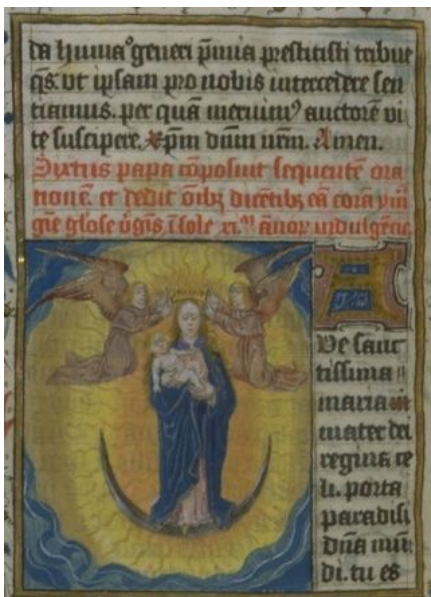 da huma⁹ generi p̄mia prestitisti tribue
q̄s. vt ipsam pro nobis intercedere sen
tiamus. per quā meruim⁹ auctorē vi
te suscipere. xp̄m dn̄m nr̄m. Amen.
Sixtus papa cōposuit sequentē ora
tionē. et dedit oīb; dicētib; eā corā
sole xi.ᵐ annoꝝ indulgēcie
A
Ve sanc
tissima
maria
mater dei
regina ce
li. porta
paradisi
dn̄a mun
di. tu es